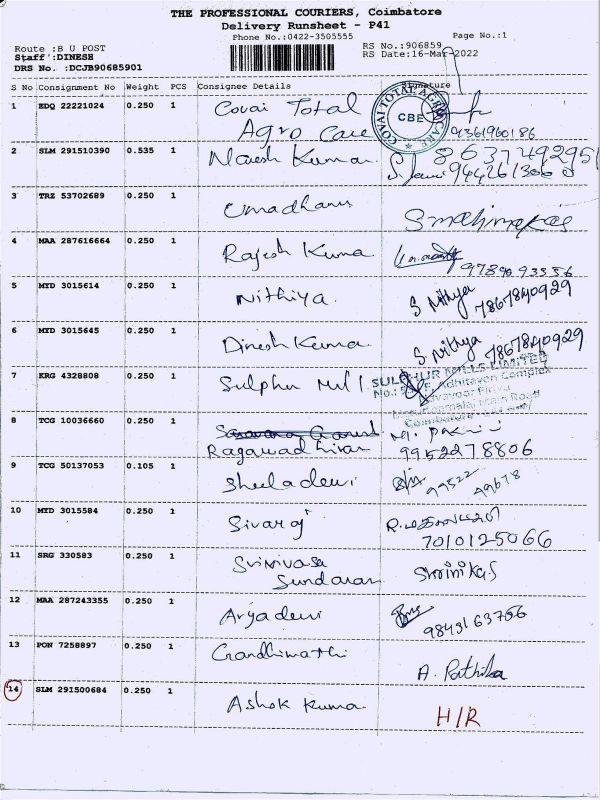 THE PROFESSIONAL COURIERS, Coimbatore
Delivery Runsheet - P41
Phone No.:0422-3505555
Page No.:1
Route :B U POST
Staff :DINESH
DRS No. :DCJB90685901
RS No.:906859
RS Date:16-Mar-2022
S No Consignment No Weight PCS Consignee Details Signature
1 EDQ 22221024 0.250 1 Covai Total
Agro Care
COVAI TOTAL AGRO CARE
CBE
9361960186
2 SLM 291510390 0.535 1 Naresh Kumar
8637492951
3 TRZ 53702689 0.250 1 Umadhanu
4 MAA 287616664 0.250 1 Rajesh Kumar
9789093356
5 MYD 3015614 0.250 1 Nithiya S Nithya
7867840929
6 MYD 3015645 0.250 1 Dinesh Kumar S Nithya
7867840929
7 KRG 4328808 0.250 1 Sulphur Mill SULPHUR MILLS LIMITED
Adhitayan Complex
Main Road
Coimbatore
8 TCG 10036660 0.250 1
Ragawadhiran 9952278806
9 TCG 50137053 0.105 1 Sheeladevi
99522 49678
10 MYD 3015584 0.250 1 Sivaraj
7010125066
11 SRG 330583 0.250 1 Srinivasa
Sundaram Shrinikas
12 MAA 287243355 0.250 1 Aryadevi
9843163766
13 PON 7258897 0.250 1 Gandhimathi
A. Rathika
14 SLM 291500684 0.250 1 Ashok Kumar H/R